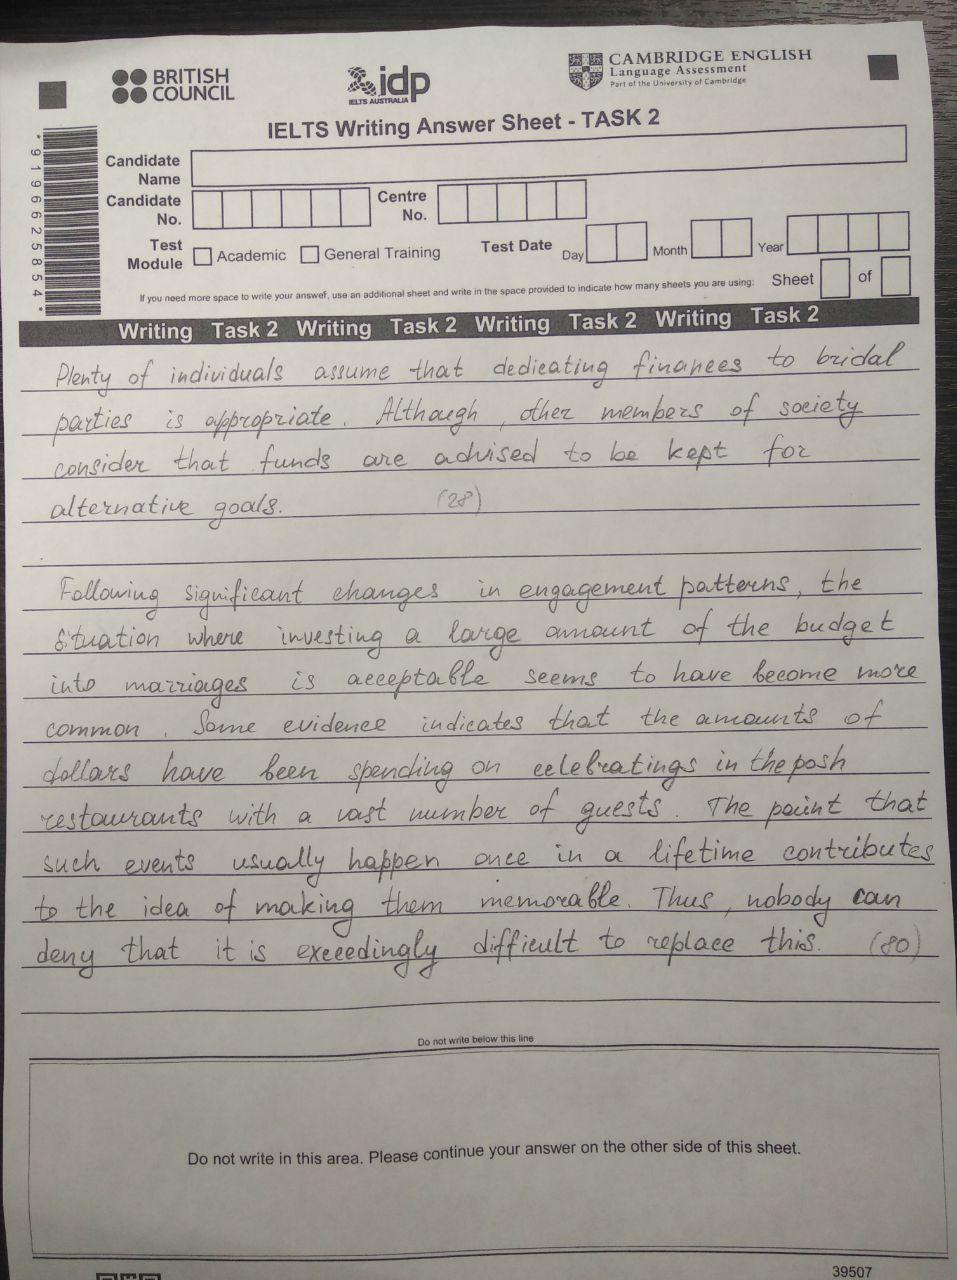 BRITISH COUNCIL
idp
IELTS AUSTRALIA
CAMBRIDGE ENGLISH
Language Assessment
Part of the University of Cambridge
IELTS Writing Answer Sheet - TASK 2
* 9 1 9 6 6 2 5 8 5 4 *
Candidate Name
Candidate No.
Centre No.
Test Module
Academic
General Training
Test Date
Day
Month
Year
If you need more space to write your answer, use an additional sheet and write in the space provided to indicate how many sheets you are using:
Sheet
of
Writing Task 2 Writing Task 2 Writing Task 2 Writing Task 2
Plenty of individuals assume that dedicating finances to bridal
parties is appropriate. Although, other members of society
consider that funds are advised to be kept for
alternative goals. (28)
Following significant changes in engagement patterns, the
situation where investing a large amount of the budget
into marriages is acceptable seems to have become more
common. Some evidence indicates that the amounts of
dollars have been spending on celebratings in the posh
restaurants with a vast number of guests. The point that
such events usually happen once in a lifetime contributes
to the idea of making them memorable. Thus, nobody can
deny that it is exceedingly difficult to replace this. (80)
Do not write below this line
Do not write in this area. Please continue your answer on the other side of this sheet.
39507